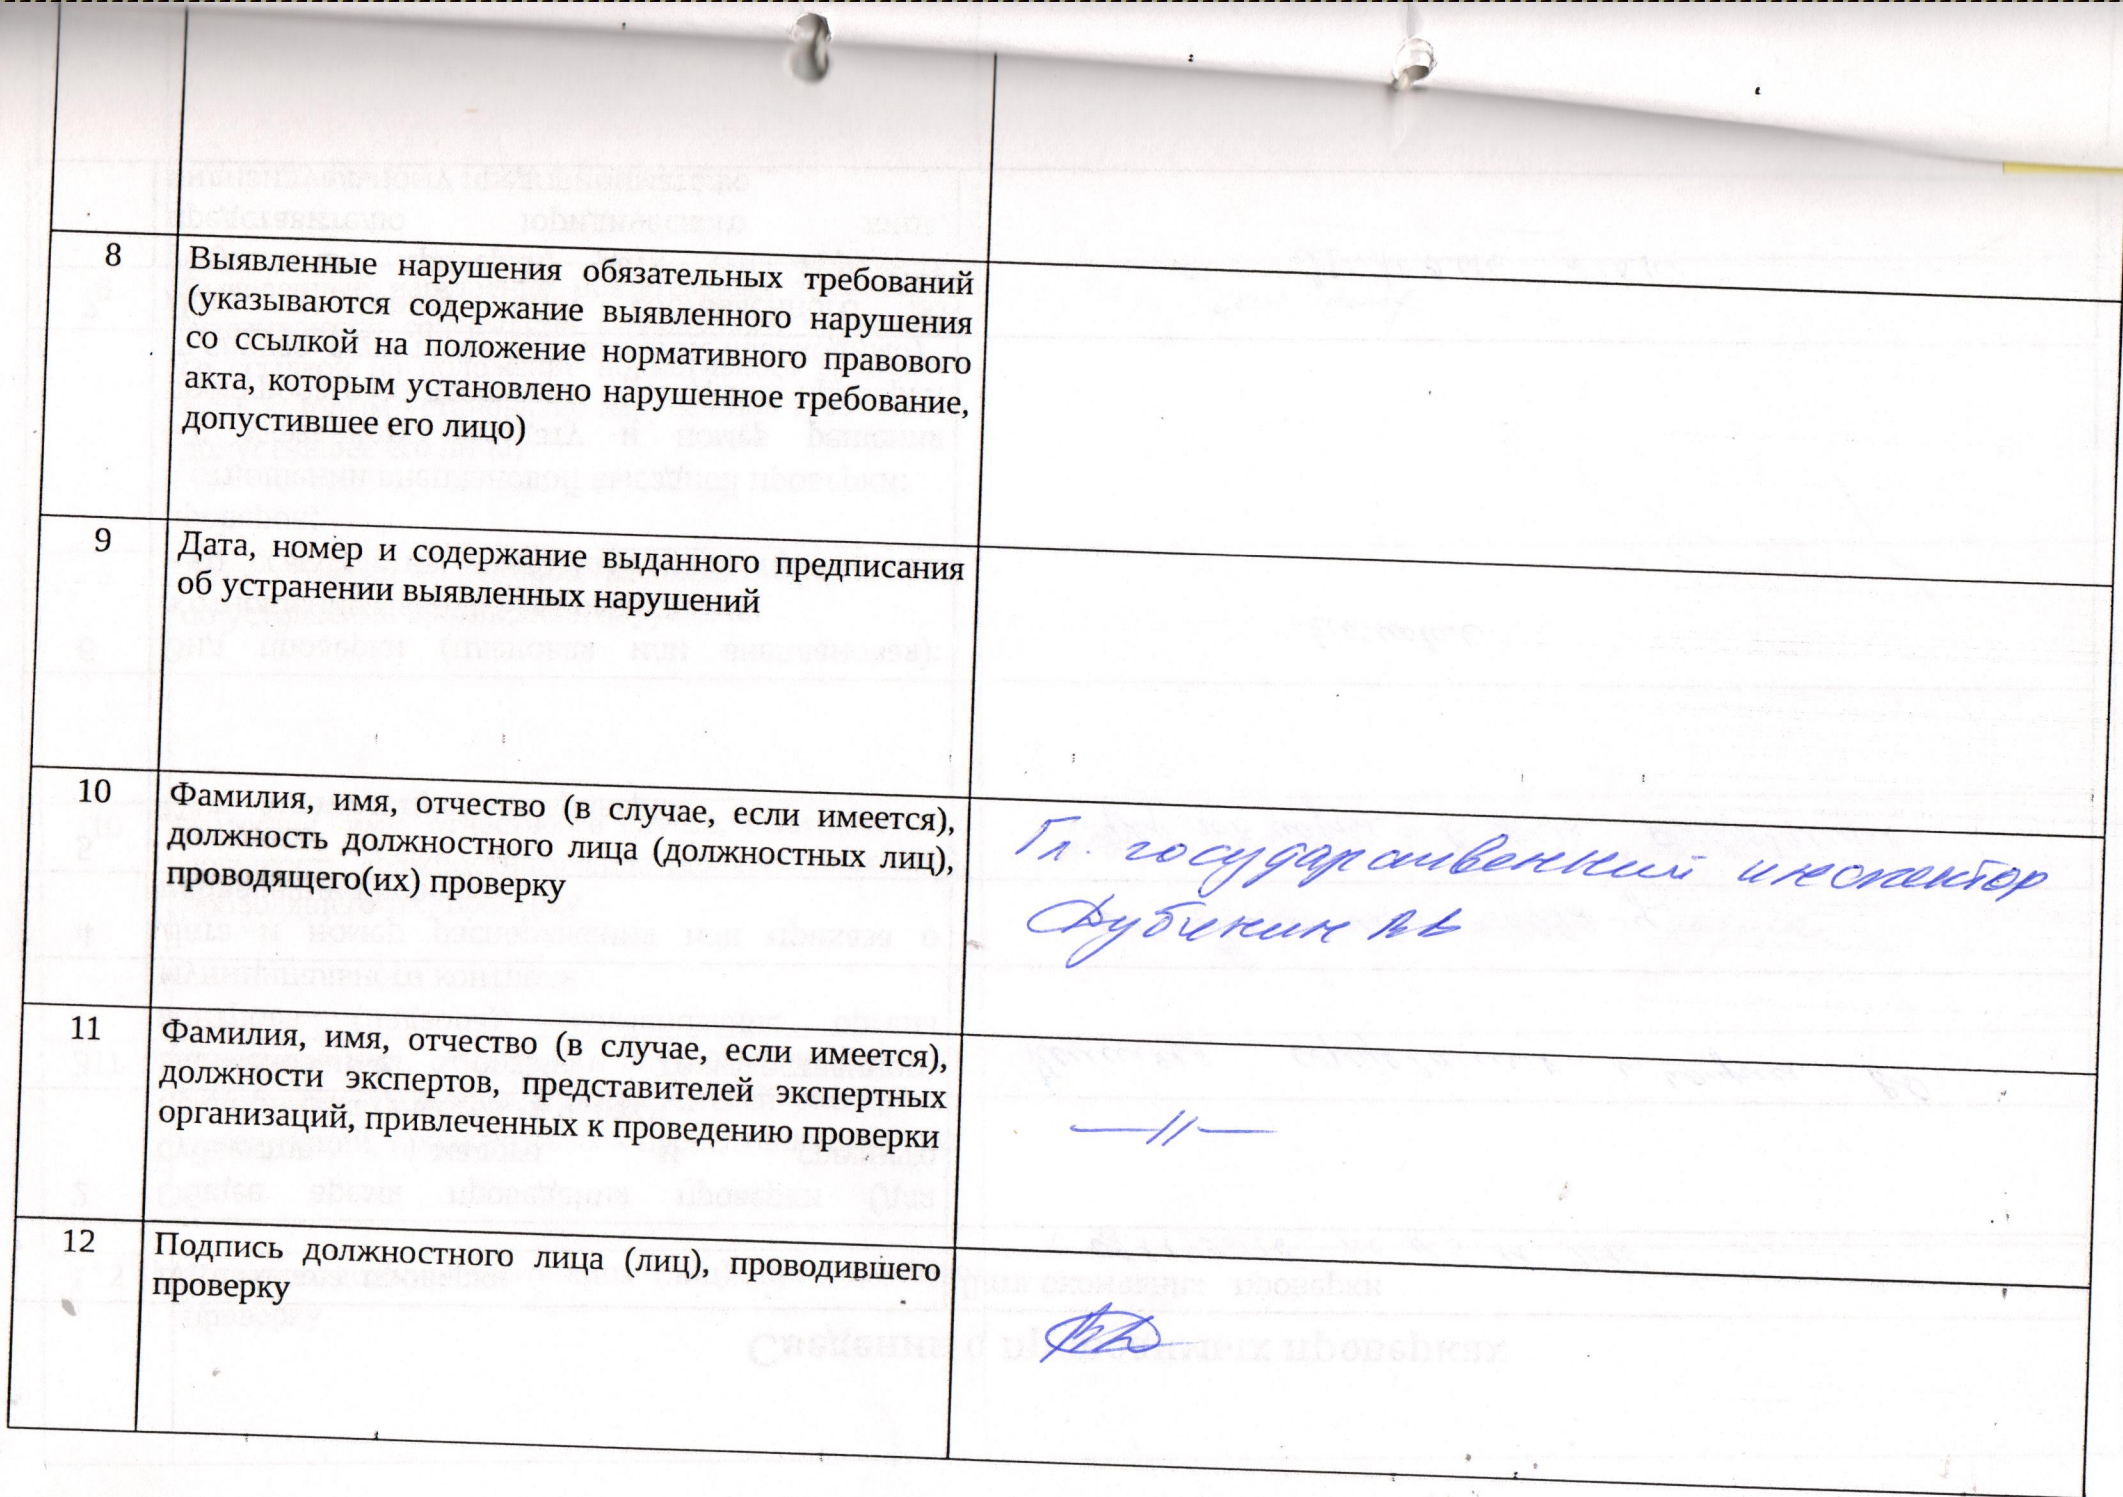 8
Выявленные нарушения обязательных требований
(указываются содержание выявленного нарушения
со ссылкой на положение нормативного правового
акта, которым установлено нарушенное требование,
допустившее его лицо)
9
Дата, номер и содержание выданного предписания
об устранении выявленных нарушений
10
Фамилия, имя, отчество (в случае, если имеется),
должность должностного лица (должностных лиц),
проводящего(их) проверку
Гл. государственный инспектор
Дубинин
11
Фамилия, имя, отчество (в случае, если имеется),
должности экспертов, представителей экспертных
организаций, привлеченных к проведению проверки
—//—
12
Подпись должностного лица (лиц), проводившего
проверку